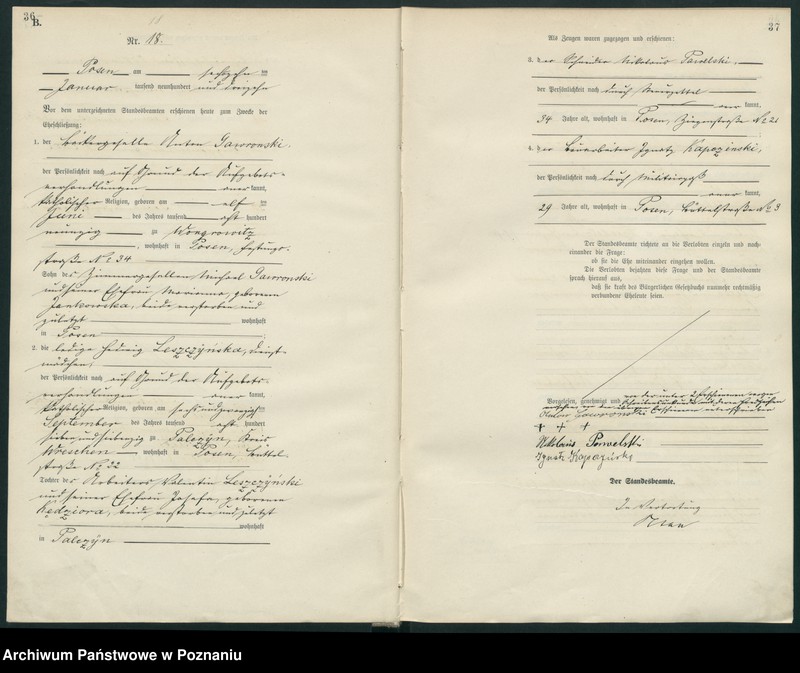 36
B.
Nr. 18.
Posen am sechzehn ten
Januar tausend neunhundert und dreizehn
Vor dem unterzeichneten Standesbeamten erschienen heute zum Zwecke der
Eheschließung:
1. der Bäckergeselle Anton Gawronski
der Persönlichkeit nach auf Grund der Aufgebots-
verhandlungen kannt,
katholischer Religion, geboren am elf ten
Juni des Jahres tausend acht hundert
neunzig zu Wongrowitz
, wohnhaft in Posen, Festungs-
straße No 34
Sohn des Zimmergesellen Michael Gawronski
und seiner Ehefrau Marianna, geborenen
Jankowska, beide verstorben und
zuletzt wohnhaft
in Posen
2. die ledige Hedwig Leszczyńska, Dienst-
mädchen,
der Persönlichkeit nach auf Grund der Aufgebots-
verhandlungen kannt,
katholischer Religion, geboren am sechsundzwanzigsten
September des Jahres tausend acht hundert
siebenundsiebzig zu Palczyn, Kreis
Wreschen wohnhaft in Posen, Büttel-
straße No 22
Tochter des Arbeiters Valentin Leszczyński
und seiner Ehefrau Josefa, geborenen
Kędziora, beide verstorben und zuletzt
wohnhaft
in Palczyn
37
Als Zeugen waren zugezogen und erschienen:
3. der Schneider Nikolaus Pawelski,
der Persönlichkeit nach durch
kannt,
34 Jahre alt, wohnhaft in Posen, Ziegenstraße No 21
4. der Bauarbeiter Ignatz Kapczinski,
der Persönlichkeit nach durch Militärpaß
kannt,
29 Jahre alt, wohnhaft in Posen, Büttelstraße No 3
Der Standesbeamte richtete an die Verlobten einzeln und nach-
einander die Frage:
ob sie die Ehe miteinander eingehen wollen.
Die Verlobten bejahten diese Frage und der Standesbeamte
sprach hierauf aus,
daß sie kraft des Bürgerlichen Gesetzbuchs nunmehr rechtmäßig
verbundene Eheleute seien.
Vorgelesen, genehmigt und von der unter 2 Erschienenen wegen
Anton Gawronski
+ + +
Nikolaus Pawelski
Ignatz
Der Standesbeamte.
In Vertretung
Archiwum Państwowe w Poznaniu